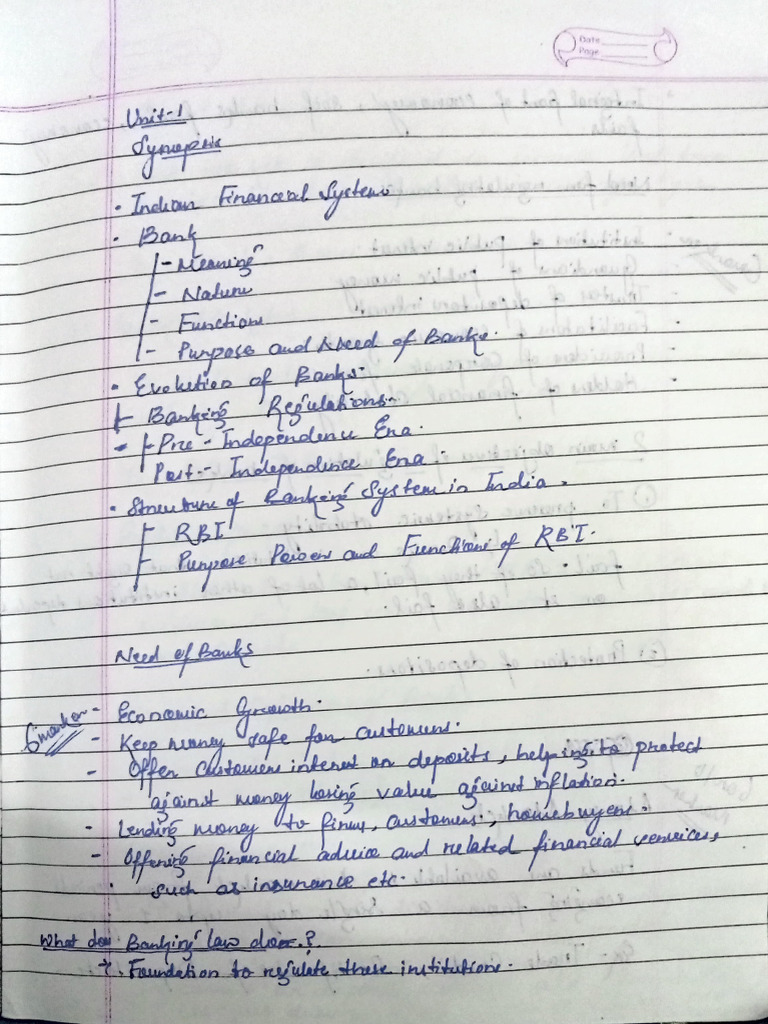 Date
Page
Unit-1
Synopsis
• Indian Financial System
• Bank
- Meaning
- Nature
- Functions
- Purpose and Need of Banks.
• Evolution of Banks.
Banking Regulations.
- Pre - Independence Era.
Post - Independence Era.
• Structure of Banking System in India.
- RBI
- Purpose Powers and Functions of RBI.
Need of Banks
6 marker - Economic Growth.
- Keep money safe for customers.
- Offer customers interest on deposits, helping to protect
against money losing value against inflation.
- Lending money to firms, customers, homebuyers.
- Offering financial advice and related financial services,
such as insurance etc.
What does Banking law does?
→ Foundation to regulate these institutions.